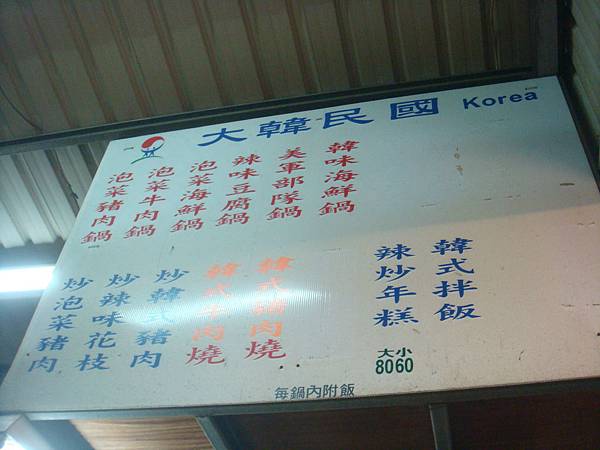 大韓民國 Korea
韓味海鮮鍋
美軍部隊鍋
辣味豆腐鍋
泡菜海鮮鍋
泡菜牛肉鍋
泡菜豬肉鍋
韓式拌飯
辣炒年糕
大小
8060
韓式豬肉燒
韓式牛肉燒
炒韓式豬肉
炒辣味花枝
炒泡菜豬肉
每鍋內附飯